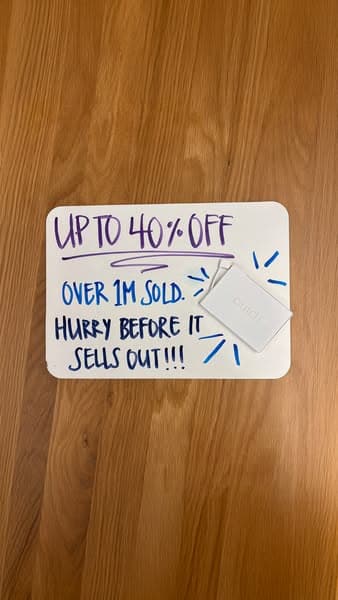 UP TO 40% OFF
OVER 1M SOLD.
HURRY BEFORE IT
SELLS OUT!!!